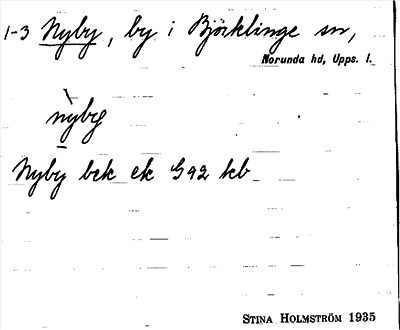 1-3 Nyby, by i Björklinge sn,
Norunda hd, Upps. l.
nỳby
Nyby bek ek G 92 kb
STINA HOLMSTRÖM 1935